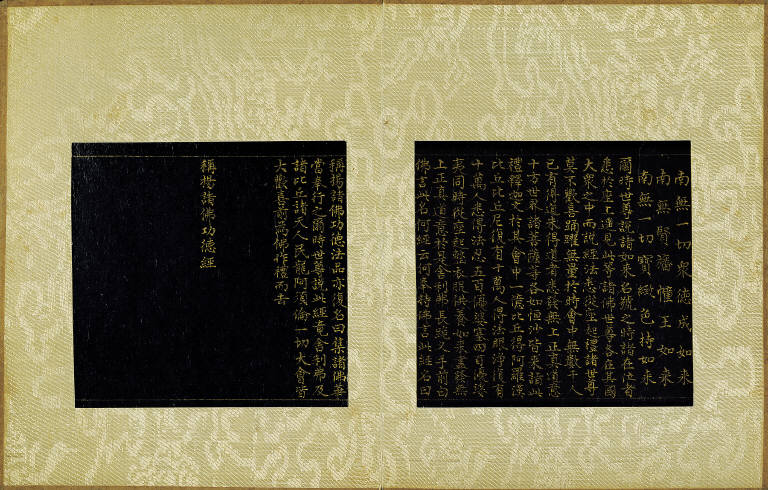 南無一切眾德成如來
南無賢幡幢王如來
南無一切寶緻色持如來
爾時世尊說諸如來名號之時諸在坐者
悉於座上遙見此等諸佛世尊各在其國
大眾之中而說經法悉從座起禮諸世尊
莫不歡喜踊躍無量於時會中無數千人
已有得道未得道者悉發無上正真道意
十方世界諸菩薩等各如恒沙皆來詣此
禮釋迦文於其會中一億比丘得阿羅漢
比丘比丘尼復有十萬人得法眼淨復有
十萬人悉得法忍五百優婆塞四百優婆
夷同時從座起整衣服供養如來盡發無
上正真道意於是舍利弗長跪叉手前白
佛言此名何經云何奉持佛言此經名曰
稱揚諸佛功德法品亦復名曰集諸佛華
當奉行之爾時世尊說此經竟舍利弗及
諸比丘諸天人民龍阿須倫一切大會皆
大歡喜前為佛作禮而去
稱揚諸佛功德經